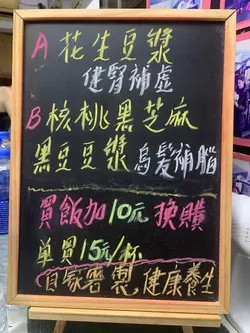 A 花生豆漿
健腎補虛
B 核桃黑芝麻
黑豆豆漿 烏髮補腦
買飯加10元換購
單買15元/杯
自家磨製,健康養生